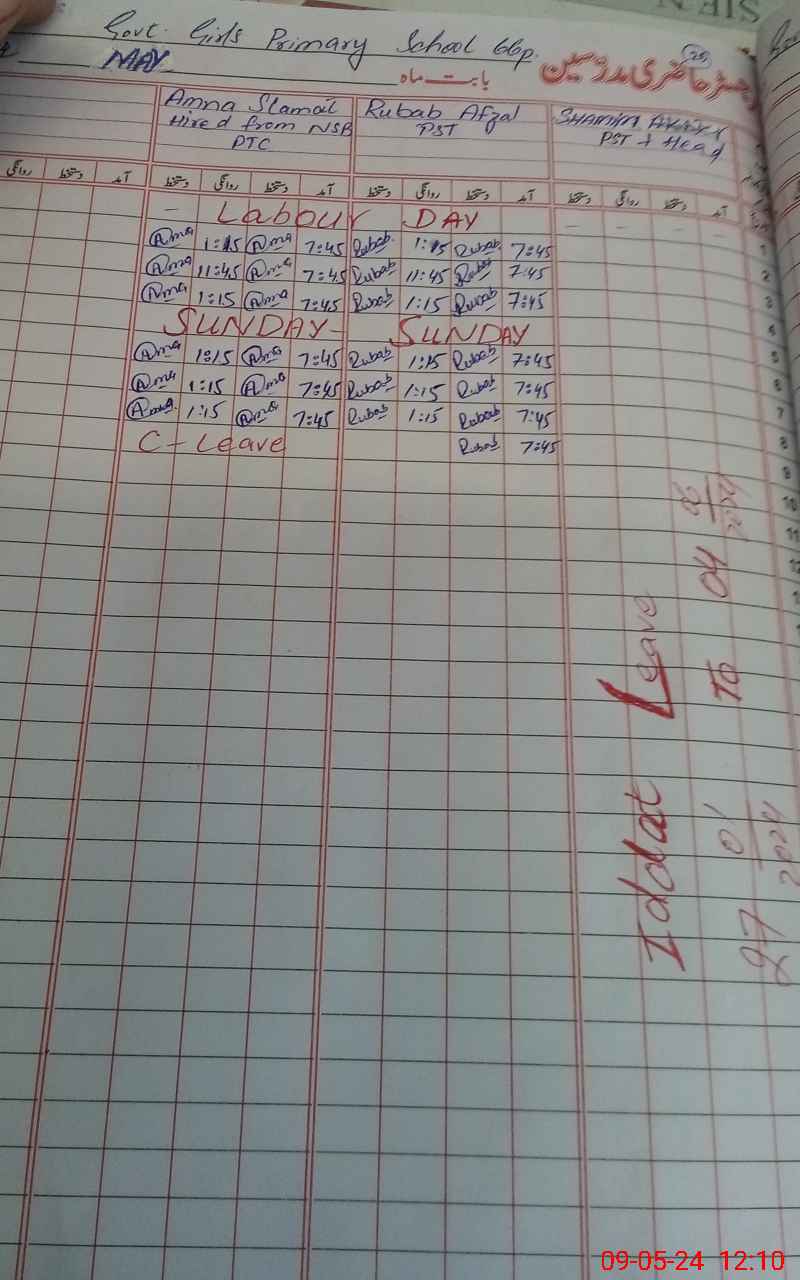 Govt. Girls Primary School 66p.
MAY بابت ماہ رجسٹر حاضری مدرسین 25
Amna Slamat Rubab Afzal
Hired from NSB PST PST + Head
PTC
روانگی دستخط آمد دستخط روانگی دستخط آمد دستخط روانگی دستخط آمد دستخط روانگی دستخط آمد
Labour DAY 1
Amna 1:15 Amna 7:45 Rubab 1:15 Rubab 7:45 2
Amna 11:45 Amna 7:45 Rubab 11:45 Rubab 7:45 3
Amna 1:15 Amna 7:45 Rubab 1:15 Rubab 7:45 4
SUNDAY SUNDAY 5
Amna 1:15 Amna 7:45 Rubab 1:15 Rubab 7:45 6
Amna 1:15 Amna 7:45 Rubab 1:15 Rubab 7:45 7
Amna 1:15 Amna 7:45 Rubab 1:15 Rubab 7:45 8
C-Leave Rubab 7:45 9
10
11
12
Iddat Leave
27 01/2024 To 04 6/2024
09-05-24 12:10